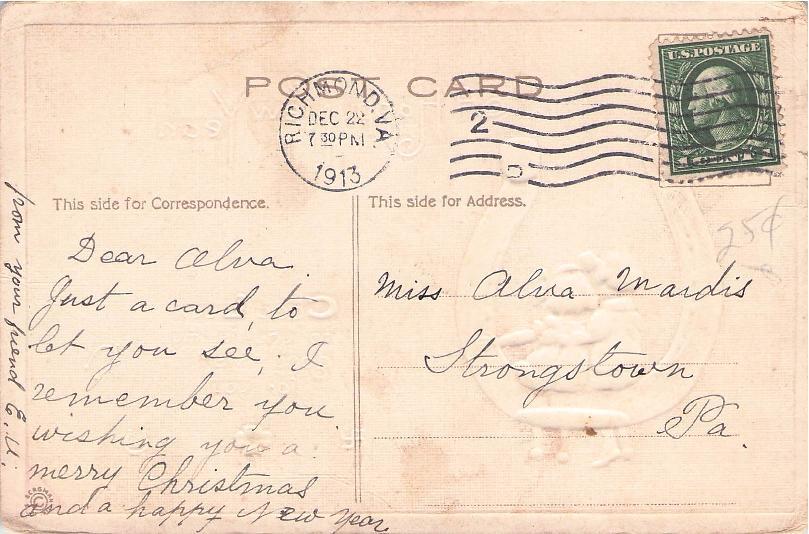 POST CARD
RICHMOND, VA.
DEC 22
7 30 PM
1913
2
D
U.S. POSTAGE
This side for Correspondence.
This side for Address.
Dear Alva.
Just a card, to
let you see, I
remember you.
wishing you a
merry Christmas
and a happy New Year
from your friend E. U.
Miss Alva Mardis
Strongstown
Pa.
25¢
BERGMAN